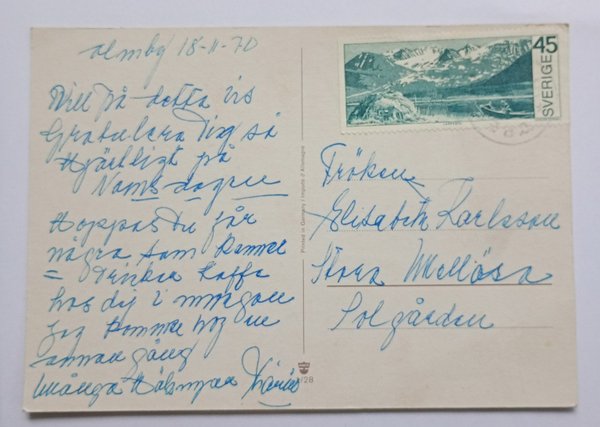 Almby 18-11-70
Vill på detta vis
Gratulera Dig så
Hjärtligt på
Namsdagen
Hoppas Du får
några som kommer
= dricker kaffe
hos dig i morgon
jag kommer nog en
annan gång
Många Hälsningar
Printed in Germany / Imprimé d'Allemagne
45
SVERIGE
Fröken
Elisabeth Karlsson
Stora Mellösa
Solgården